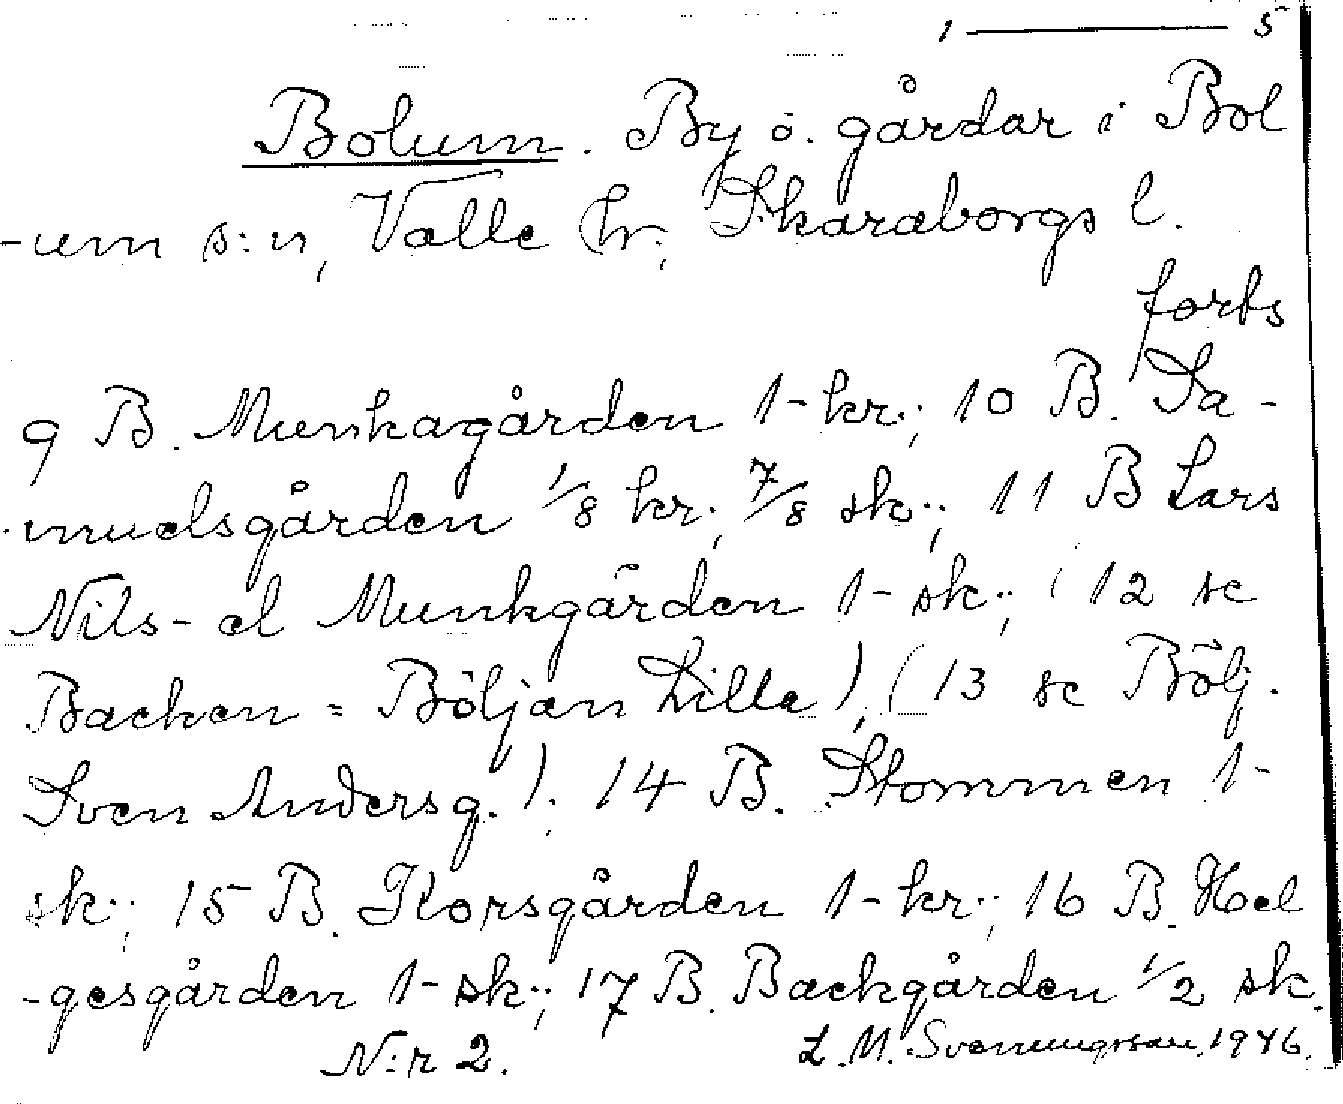 1 ——— 5
Bolum. By o. gårdar i Bol
-um s:n, Valle hr, Skaraborgs l.
forts
9 B. Munkagården 1- kr.; 10 B. Sa-
muelsgården 1/8 kr, 7/8 sk.; 11 B Lars
Nils- el Munkgården 1- sk.; (12 se
Backen = Böljan Lilla), (13 se Bölj.
Sven Andersg.). 14 B. Stommen 1-
sk.; 15 B. Korsgården 1- kr.; 16 B. Hel
-gesgården 1- sk.; 17 B. Backgården 1/2 sk.
N:r 2. L. M. Svenungsson, 1946.